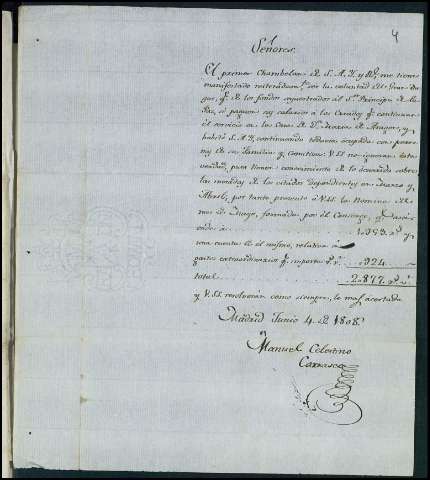 4
Señores.
El primer Chambelan de S. A. I. y R. me tiene
manifestado reiteradam.te ser la voluntad del Gran Du-
que, q.e de los fondos sequestrados al S.or Principe de la
Paz, se paguen sus salarios á los Criados q.e continuan
el servicio en las Casas de D.a Maria de Aragon, q.e
habitó S. A. I. continuando todavia ocupada con perso-
nas de su Familia y Comitiva: V. SS. no ignoran esta
verdad, pues tienen conocimiento de lo ocurrido sobre
las mesadas de los citados dependientes en Marzo y
Abril; por tanto presento á V. SS. la Nomina del
mes de Mayo, formada por el Conserge, q.e
ende á 1.953. r.s y
una cuenta de el mismo, relativa á
gastos extraordinarios q.e importa r.s v.n 924.
total 2.877 r.s v.n
y V. SS. resolverán como siempre, lo mas acertado
Madrid Junio 4. de 1808.
Manuel Celestino
Carrasco